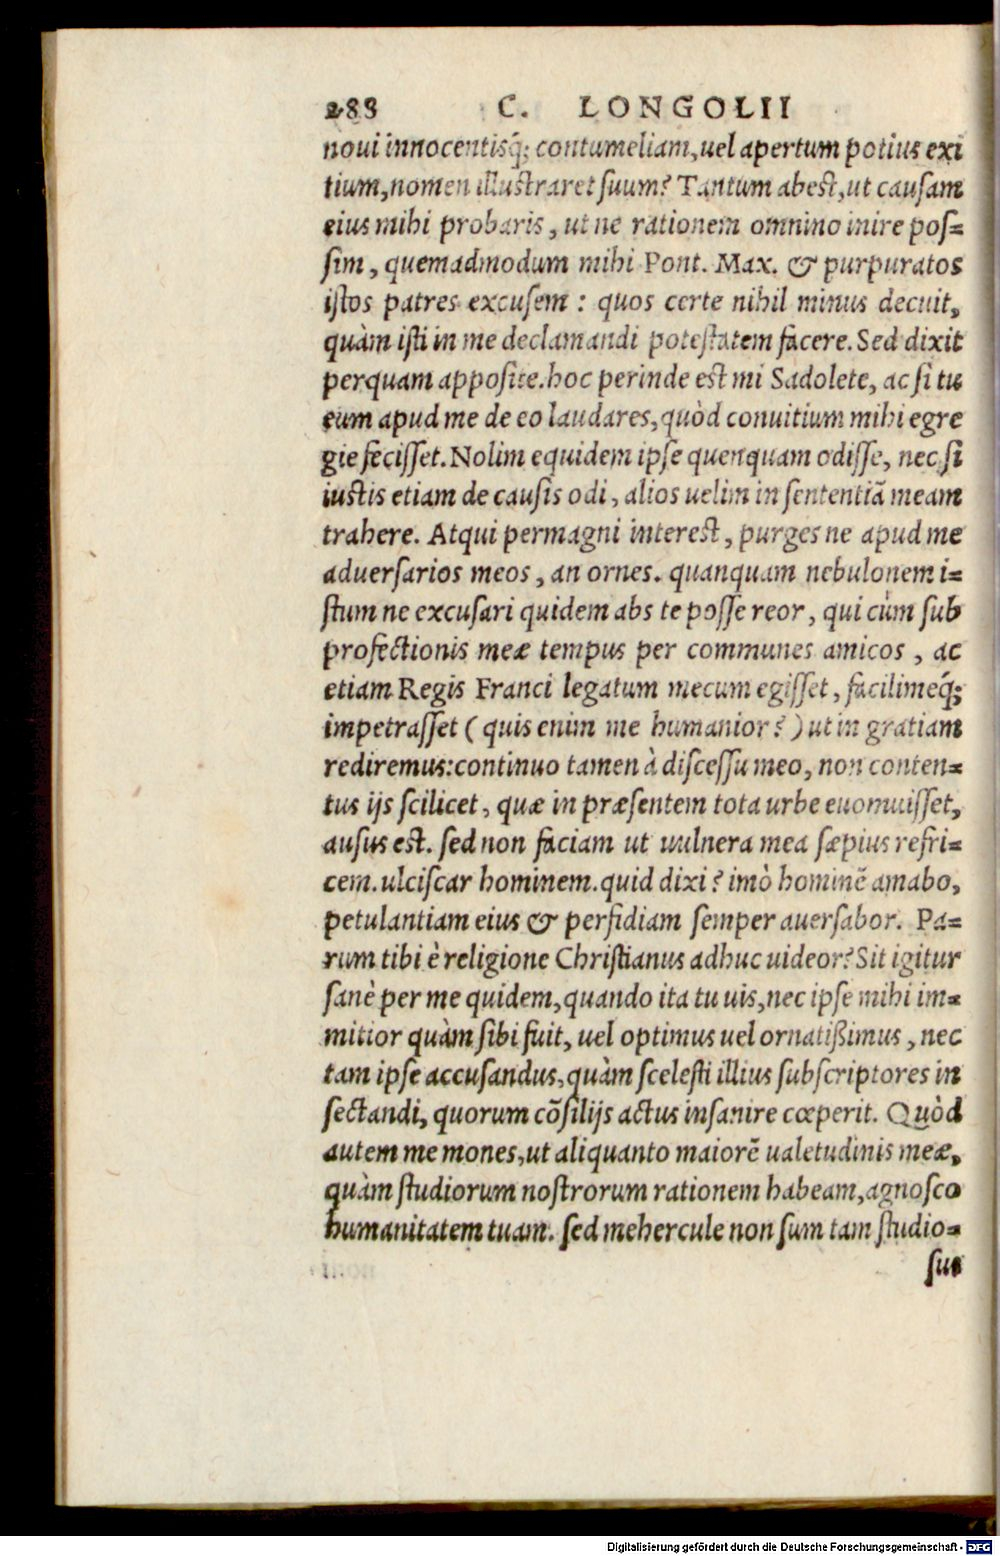 288 C. LONGOLII
noui innocentisq́; contumeliam,uel apertum potius exi
tium,nomen illustraret suum? Tantum abest,ut causam
eius mihi probaris, ut ne rationem omnino inire pos-
sim, quemadmodum mihi Pont. Max. & purpuratos
istos patres excusem: quos certe nihil minus decuit,
quàm isti in me declamandi potestatem facere. Sed dixit
perquam apposite.hoc perinde est mi Sadolete, ac si tu
eum apud me de eo laudares,quòd conuitium mihi egre
gie fecisset. Nolim equidem ipse quenquam odisse, nec si
iustis etiam de causis odi, alios uelim in sententiã meam
trahere. Atqui permagni interest, purges ne apud me
aduersarios meos, an ornes. quanquam nebulonem i-
stum ne excusari quidem abs te posse reor, qui cùm sub
profectionis meæ tempus per communes amicos, ac
etiam Regis Franci legatum mecum egisset, facilimeq́;
impetrasset (quis enim me humanior?) ut in gratiam
rediremus:continuo tamen à discessu meo, non conten-
tus ijs scilicet, quæ in præsentem tota urbe euomuisset,
ausus est. sed non faciam ut uulnera mea sæpius refri-
cem. ulciscar hominem. quid dixi? imò hominẽ amabo,
petulantiam eius & perfidiam semper auersabor. Pa-
rum tibi è religione Christianus adhuc uideor? Sit igitur
sanè per me quidem,quando ita tu uis,nec ipse mihi im-
mitior quàm sibi fuit, uel optimus uel ornatißimus, nec
tam ipse accusandus,quàm scelesti illius subscriptores in
sectandi, quorum cõsilijs actus insanire cœperit. Quòd
autem me mones,ut aliquanto maiorẽ ualetudinis meæ,
quàm studiorum nostrorum rationem habeam,agnosco
humanitatem tuam. sed mehercule non sum tam studio-
sus
Digitalisierung gefördert durch die Deutsche Forschungsgemeinschaft - DFG